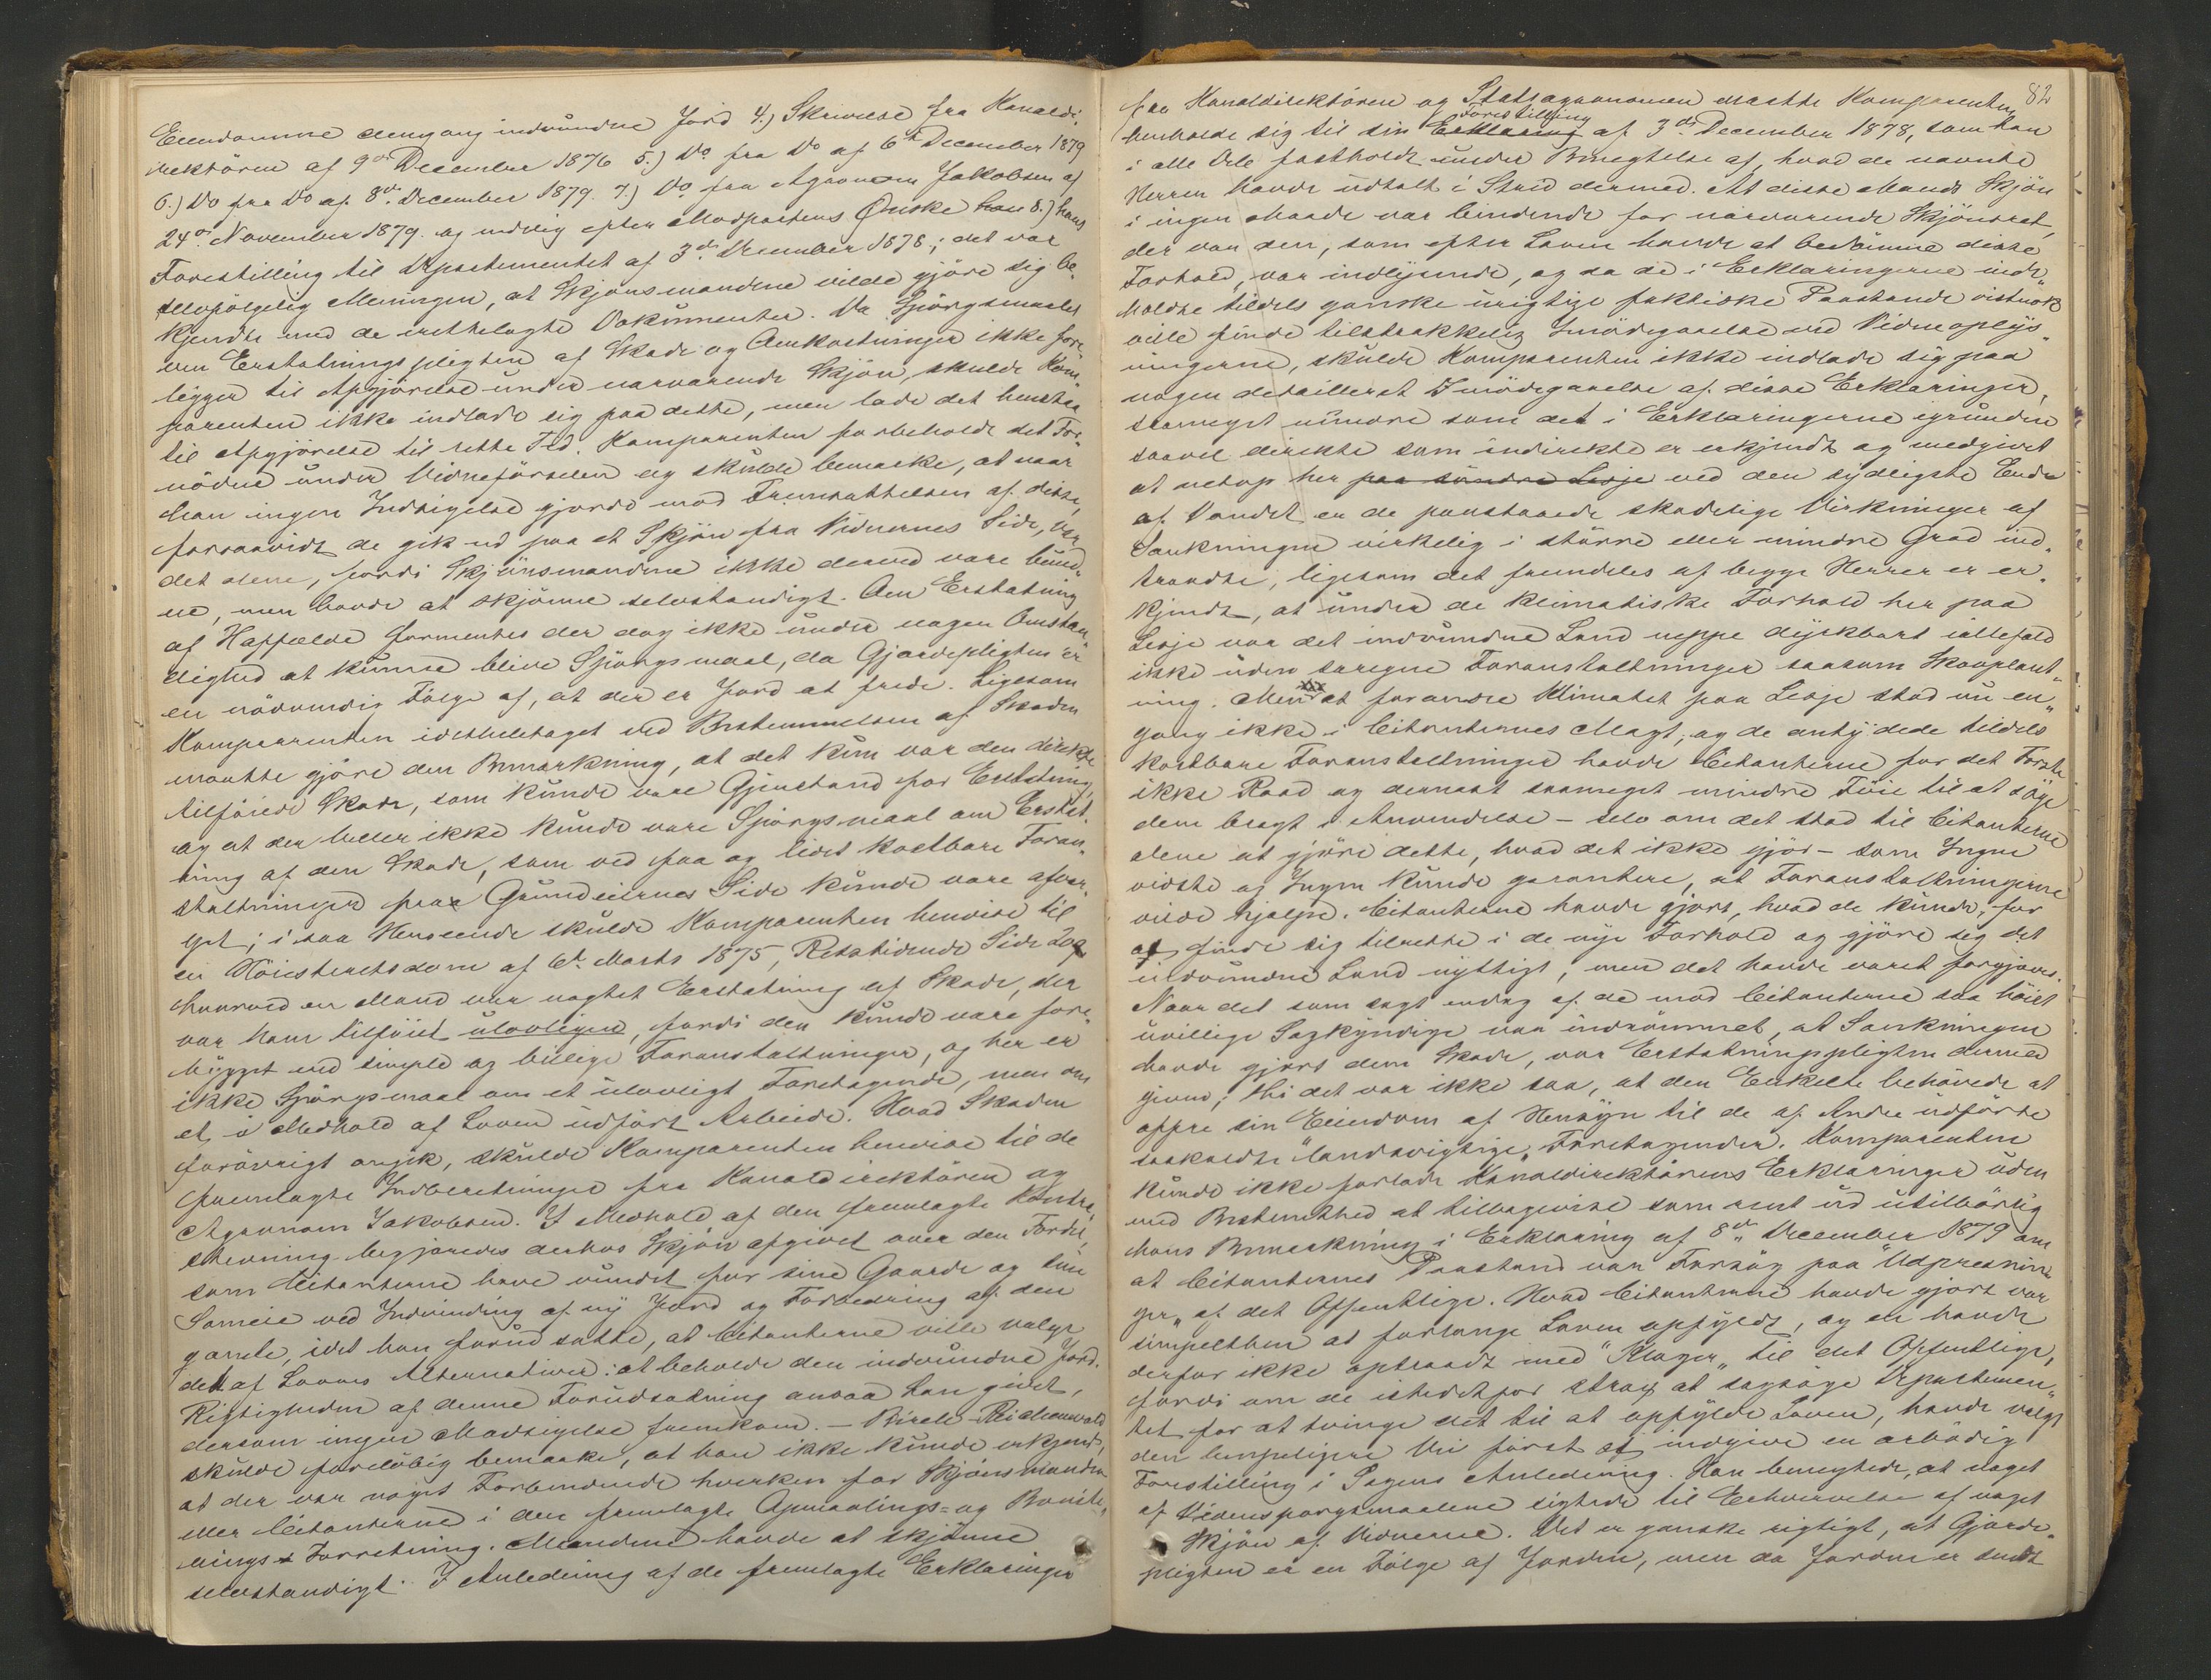 Eiendommene dengang indvundne Jord 4.) Skrivelse fra Kanaldi-
rektøren af 9de December 1876 5.) Do fra Do af 6te December 1879
6.) Do fra Do af 8de December 1879. 7.) Do fra Agronom Jakobsen af
24de November 1879. og endelig efter Modpartens Ønske han 8.) hans
Forestilling til Departementet af 3de December 1878; det var
selvfølgelig Meningen, at Skjønsmændene vilde gjøre sig be-
kjendte med de irettelagte Dokumenter. Da Spørgsmaalet
om Erstatningspligten af Skade og Omkostninger ikke fore-
ligger til Afgjørelse under nærværende Skjøn, skulde Kom-
parenten ikke indlade sig paa dette, men lade det henstaa
til Afgjørelse til rette Tid. Komparenten forbeholdt det For-
nødne under Vidneførselen og skulde bemærke, at naar
han ingen Indsigelse gjorde mod Fremsættelsen af disse,
forsaavidt de gik ud paa et Skjøn fra Vidnernes Side, var
det alene, fordi Skjønsmændene ikke derved vare bund-
ne, men havde at skjønne selvstændigt. Om Erstatning
af Havfælde formentes der dog ikke under nogen Omstæn-
dighed at kunne blive Spørgsmaal, da Gjerdepligten er
en nødvendig Følge af, at der er Jord at frede. Ligesom
Komparenten idetheletaget ved Bestemmelsen af Skaden
maatte gjøre den Bemærkning, at det kun var den direkte
tilføiede Skade, som kunde være Gjenstand for Erstatning,
og at der heller ikke kunde være Spørgsmaal om Erstat-
ning af den Skade, som ved faa og lidet kostbare Foran-
staltninger fra Grundeiernes Side kunde være afvær-
get; i saa Henseende skulde Komparenten henvise til
en Høiesteretsdom af 6te Marts 1875, Retstidende Side 209
hvorved en Mand var nægtet Erstatning af Skade, der
var ham tilføiet ulovligen, fordi den kunde være fore-
bygget ved simple og billige Foranstaltninger, og her er
ikke Spørgsmaal om et ulovligt Foretagende, men om
et i Medhold af Loven udført Arbeide. Hvad Skaden
forøvrigt angik, skulde Komparenten henvise til de
fremlagte Indberetninger fra Kanaldirektøren og
Agronom Jakobsen. I Medhold af den fremlagte Kontra-
stevning begjæredes derhos Skjøn afgivet over den Fordel,
som Citanterne have vundet for sine Gaarde og sine
Sameie ved Indvinding af ny Jord og Forbedring af den
gamle, idet han forudsatte, at Citanterne ville vælge
det af Lovens Alternativer: at beholde den indvundne Jord.
Rigtigheden af denne Forudsætning ansaa han givet,
dersom ingen Modsigelse fremkom. – Birch-Reichenwald
skulde foreløbig bemærke, at han ikke kunde erkjende,
at der var noget Forbindende hverken for Skjønsmændene
eller Citanterne i den fremlagte Opmaalings- og Bonite-
rings Forretning. Mændene havde at skjønne
selvstændigt. I Anledning af de fremlagte Erklæringer
82
fra Kanaldirektøren og Statsagronomen maatte Komparenten
Forestilling
henholde sig til sin Erklæring af 3de December 1878, som han
i alle Dele fastholdt under Benegtelse af, hvad de nævnte
Herrer havde udtalt i Strid dermed. At disse Mænds Skjøn
i ingen Maade var bindende for nærværende Skjønsret,
der var den, som efter Loven havde at bestemme disse
Forhold, var indlysende, og da de i Erklæringerne inde-
holdte tildels ganske urigtige faktiske Paastande vistnok
ville finde tilstrækkelig Imødegaaelse ved Vidneoplys-
ningerne, skulde Komparenten ikke indlade sig paa
nogen detailleret Imødegaaelse af disse Erklæringer,
saameget mindre som det i Erklæringerne igrunden
saavel direkte som indirekte er erkjendt og medgivet
at netop her paa søndre Lesje ved den sydligste Ende
af Vandet er de paastaaede skadelige Virkninger af
Sænkningen virkelig i større eller mindre Grad ind-
traadte, ligesom det fremdeles af begge Herrer er er-
kjendt, at under de klimatiske Forhold her paa
Lesje var det indvundne Land neppe dyrkbart iallefald
ikke uden særegne Foranstaltninger saasom Skovplant-
ning. Men at forandre Klimatet paa Lesje stod nu en-
gang ikke i Citanternes Magt, og de antydede tildels
kostbare Foranstaltninger havde Citanterne for det Første
ikke Raad og dernæst saameget mindre Føie til at søge
dem bragt i Anvendelse – selv om det stod til Citanterne
alene at gjøre dette, hvad det ikke gjør – som Ingen
vidste og Ingen kunde garantere, at Foranstaltningerne
vilde hjælpe. Citanterne havde gjort, hvad de kunde, for
at finde sig tilrette i de nye Forhold og gjøre sig det
indvundne Land nyttigt, men det havde været forgjæves.
Naar det som sagt endog af de mod Citanterne saa høist
uvillige Sagkyndige var indrømmet, at Sænkningen
havde gjort dem Skade, var Erstatningspligten dermed
given; thi det var ikke saa, at den Enkelte behøvede at
offre sin Eiendom af Hensyn til de af Andre udførte
saakaldte "landsvigtige" Foretagender. Komparenten
kunde ikke forlade Kanaldirektørens Erklæringer uden
med Bestemthed at tilbagevise som rent ud utilbørlig
hans Bemærkning i Erklæring af 8de December 1879 om
at Citanternes Paastand var Forsøg paa "Udpresnin-
ger" af det Offentlige. Hvad Citanterne havde gjort var
simpelthen at forlange Loven opfyldt, og de havde
derfor ikke optraadt med "Klager" til det Offentlige,
fordi om de istedetfor strax at sagsøge Departemen-
tet for at tvinge det til at opfylde Loven, havde valgt
den lempeligere Vei først at indgive en ærbødig
Forestilling i Sagens Anledning. Han benegtede, at noget
af Vidnespørgsmaalene sigtede til Erhvervelse af noget
Skjøn af Vidnerne. Det er ganske rigtigt, at Gjærde-
pligten er en Følge af Jorden, men da Jorden er